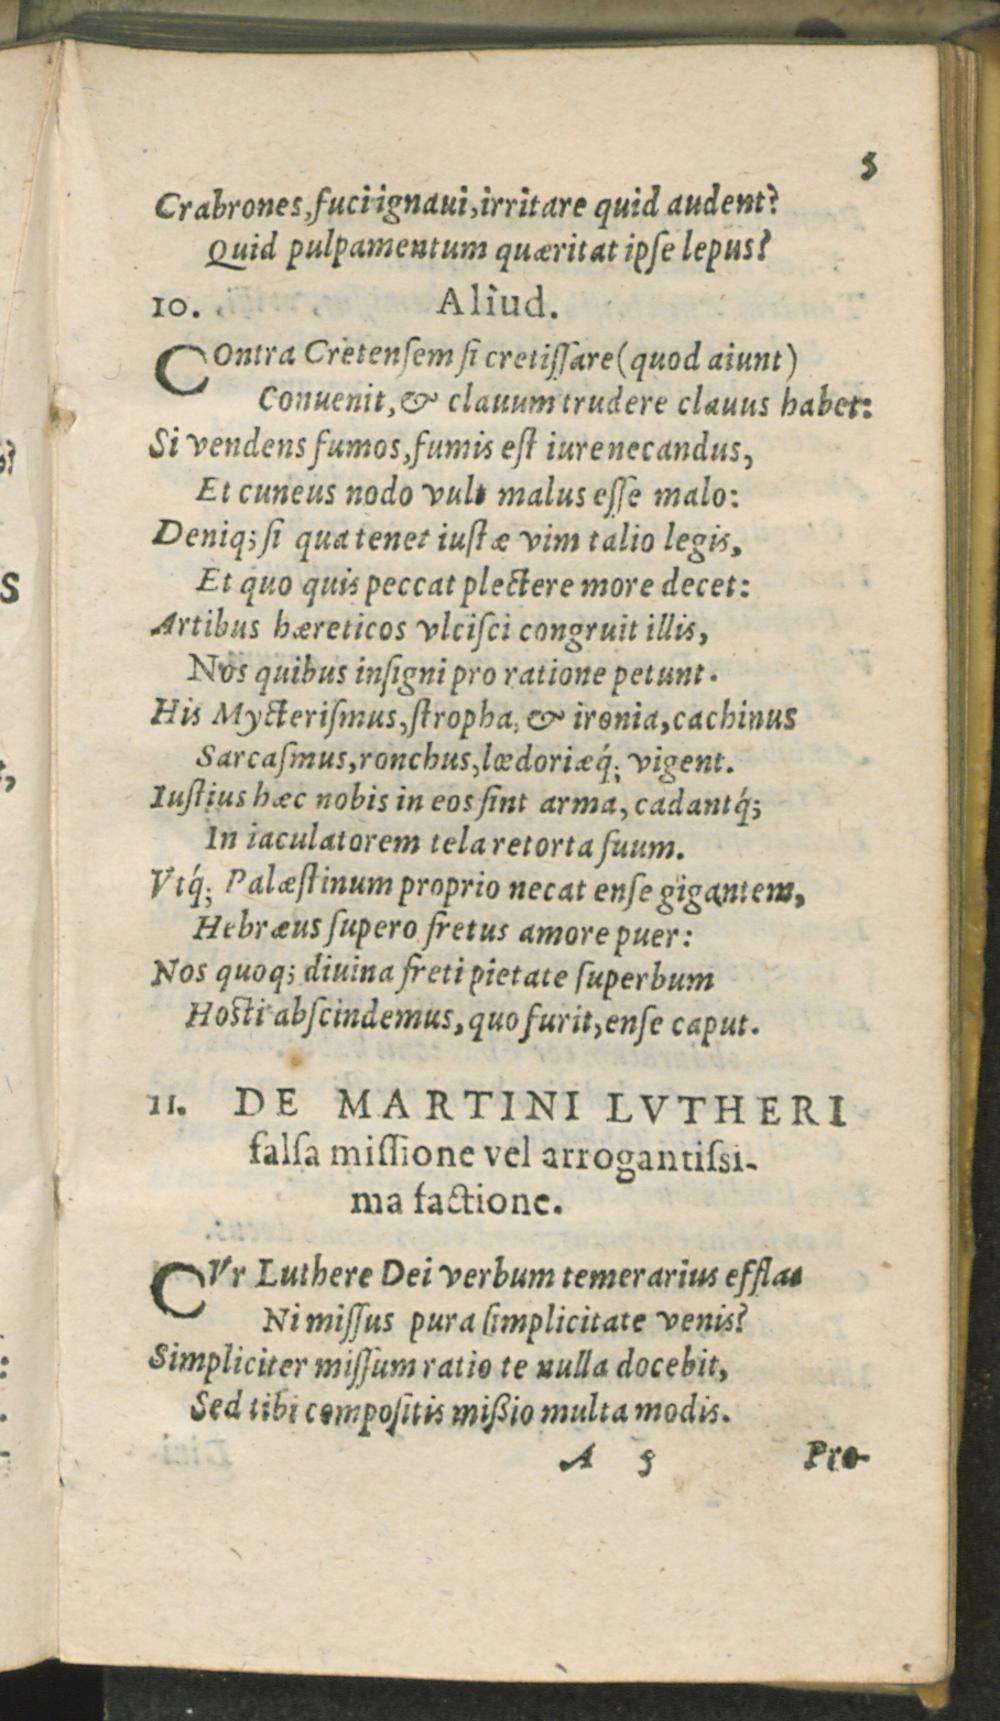 5
Crabrones, fuci ignaui, irritare quid audent?
Quid pulpamentum quæritat ipſe lepus?
10. Aliud.
COntra Cretenſem ſi cretiſſare (quod aiunt)
Conuenit, & clauum trudere clauus habet:
Si vendens fumos, fumis eſt iure necandus,
Et cuneus nodo vult malus eſſe malo:
Deniq; ſi qua tenet iuſtæ vim talio legis,
Et quo quis peccat plectere more decet:
Artibus hæreticos vlciſci congruit illis,
Nos quibus inſigni pro ratione petunt.
His Mycteriſmus, ſtropha, & ironia, cachinus
Sarcaſmus, ronchus, lœdoriæq́; vigent.
Iuſtius hæc nobis in eos ſint arma, cadantq́;
In iaculatorem tela retorta ſuum.
Vtq́; Palæſtinum proprio necat enſe gigantem,
Hebræus ſupero fretus amore puer:
Nos quoq; diuina freti pietate ſuperbum
Hoſti abſcindemus, quo furit, enſe caput.
11. DE MARTINI LVTHERI
falſa miſſione vel arrogantiſsi-
ma factione.
CVr Luthere Dei verbum temerarius efflas
Ni miſſus pura ſimplicitate venis?
Simpliciter miſſum ratio te nulla docebit,
Sed tibi compoſitis mißio multa modis.
A 5 Pro-